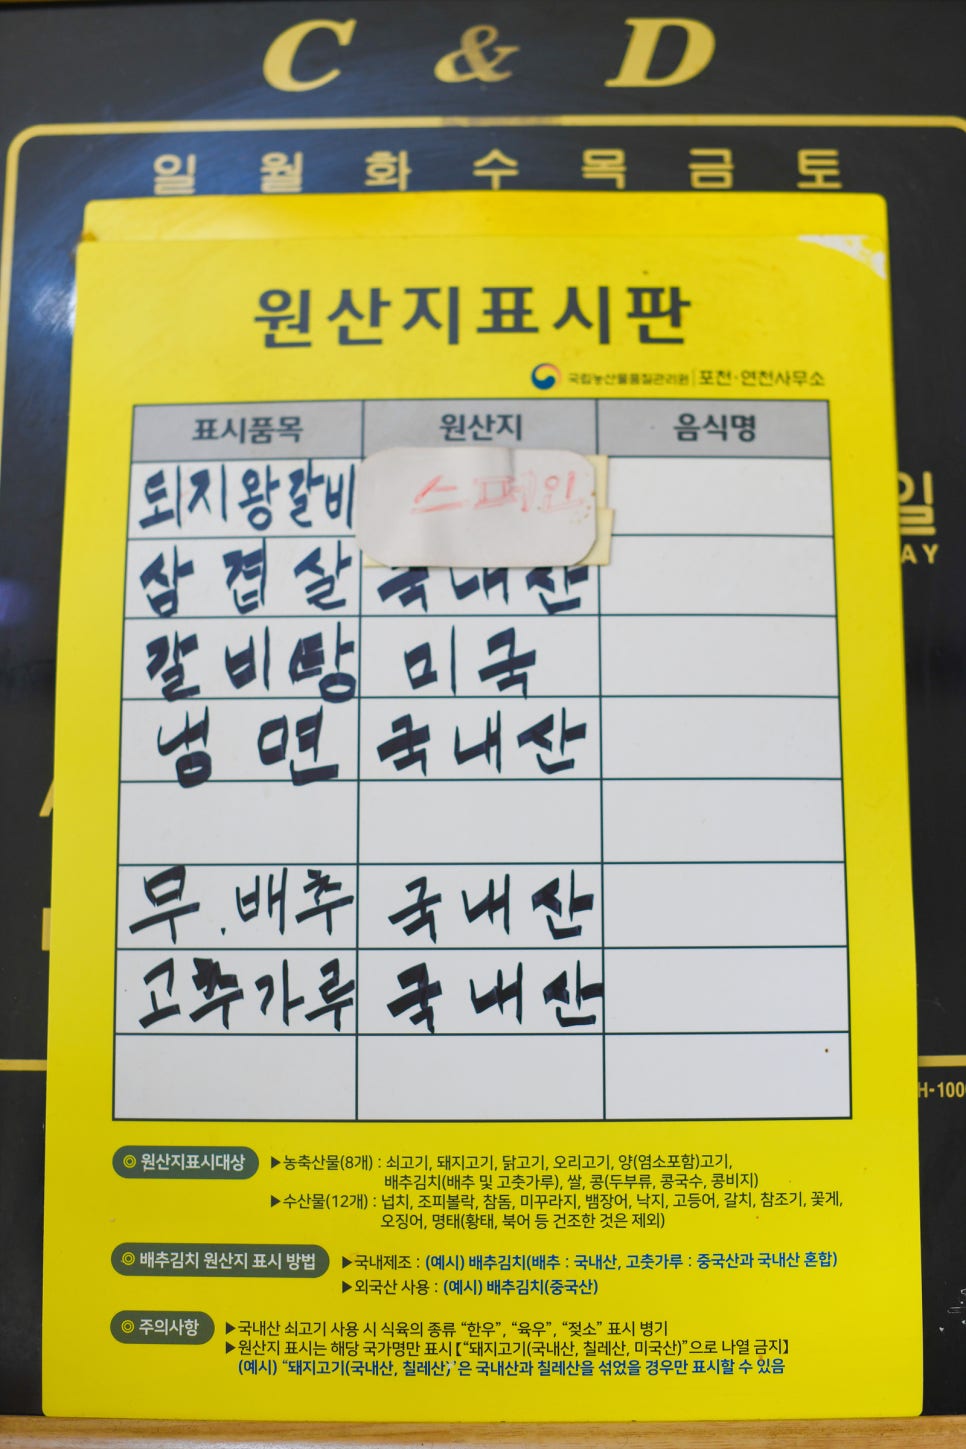 C & D
일 월 화 수 목 금 토
원산지표시판
국립농산물품질관리원 포천·연천사무소
표시품목 원산지 음식명
되지왕갈비 스페인
삼겹살 국내산
갈비탕 미국
냉면 국내산
무.배추 국내산
고추가루 국내산
일
AY
H-100
◎ 원산지표시대상 ▶농축산물(8개) : 쇠고기, 돼지고기, 닭고기, 오리고기, 양(염소포함)고기,
배추김치(배추 및 고춧가루), 쌀, 콩(두부류, 콩국수, 콩비지)
▶수산물(12개) : 넙치, 조피볼락, 참돔, 미꾸라지, 뱀장어, 낙지, 고등어, 갈치, 참조기, 꽃게,
오징어, 명태(황태, 북어 등 건조한 것은 제외)
◎ 배추김치 원산지 표시 방법 ▶국내제조 : (예시) 배추김치(배추 : 국내산, 고춧가루 : 중국산과 국내산 혼합)
▶외국산 사용 : (예시) 배추김치(중국산)
◎ 주의사항 ▶국내산 쇠고기 사용 시 식육의 종류 “한우”, “육우”, “젖소” 표시 병기
▶원산지 표시는 해당 국가명만 표시【“돼지고기(국내산, 칠레산, 미국산)”으로 나열 금지】
(예시) “돼지고기(국내산, 칠레산)”은 국내산과 칠레산을 섞었을 경우만 표시할 수 있음